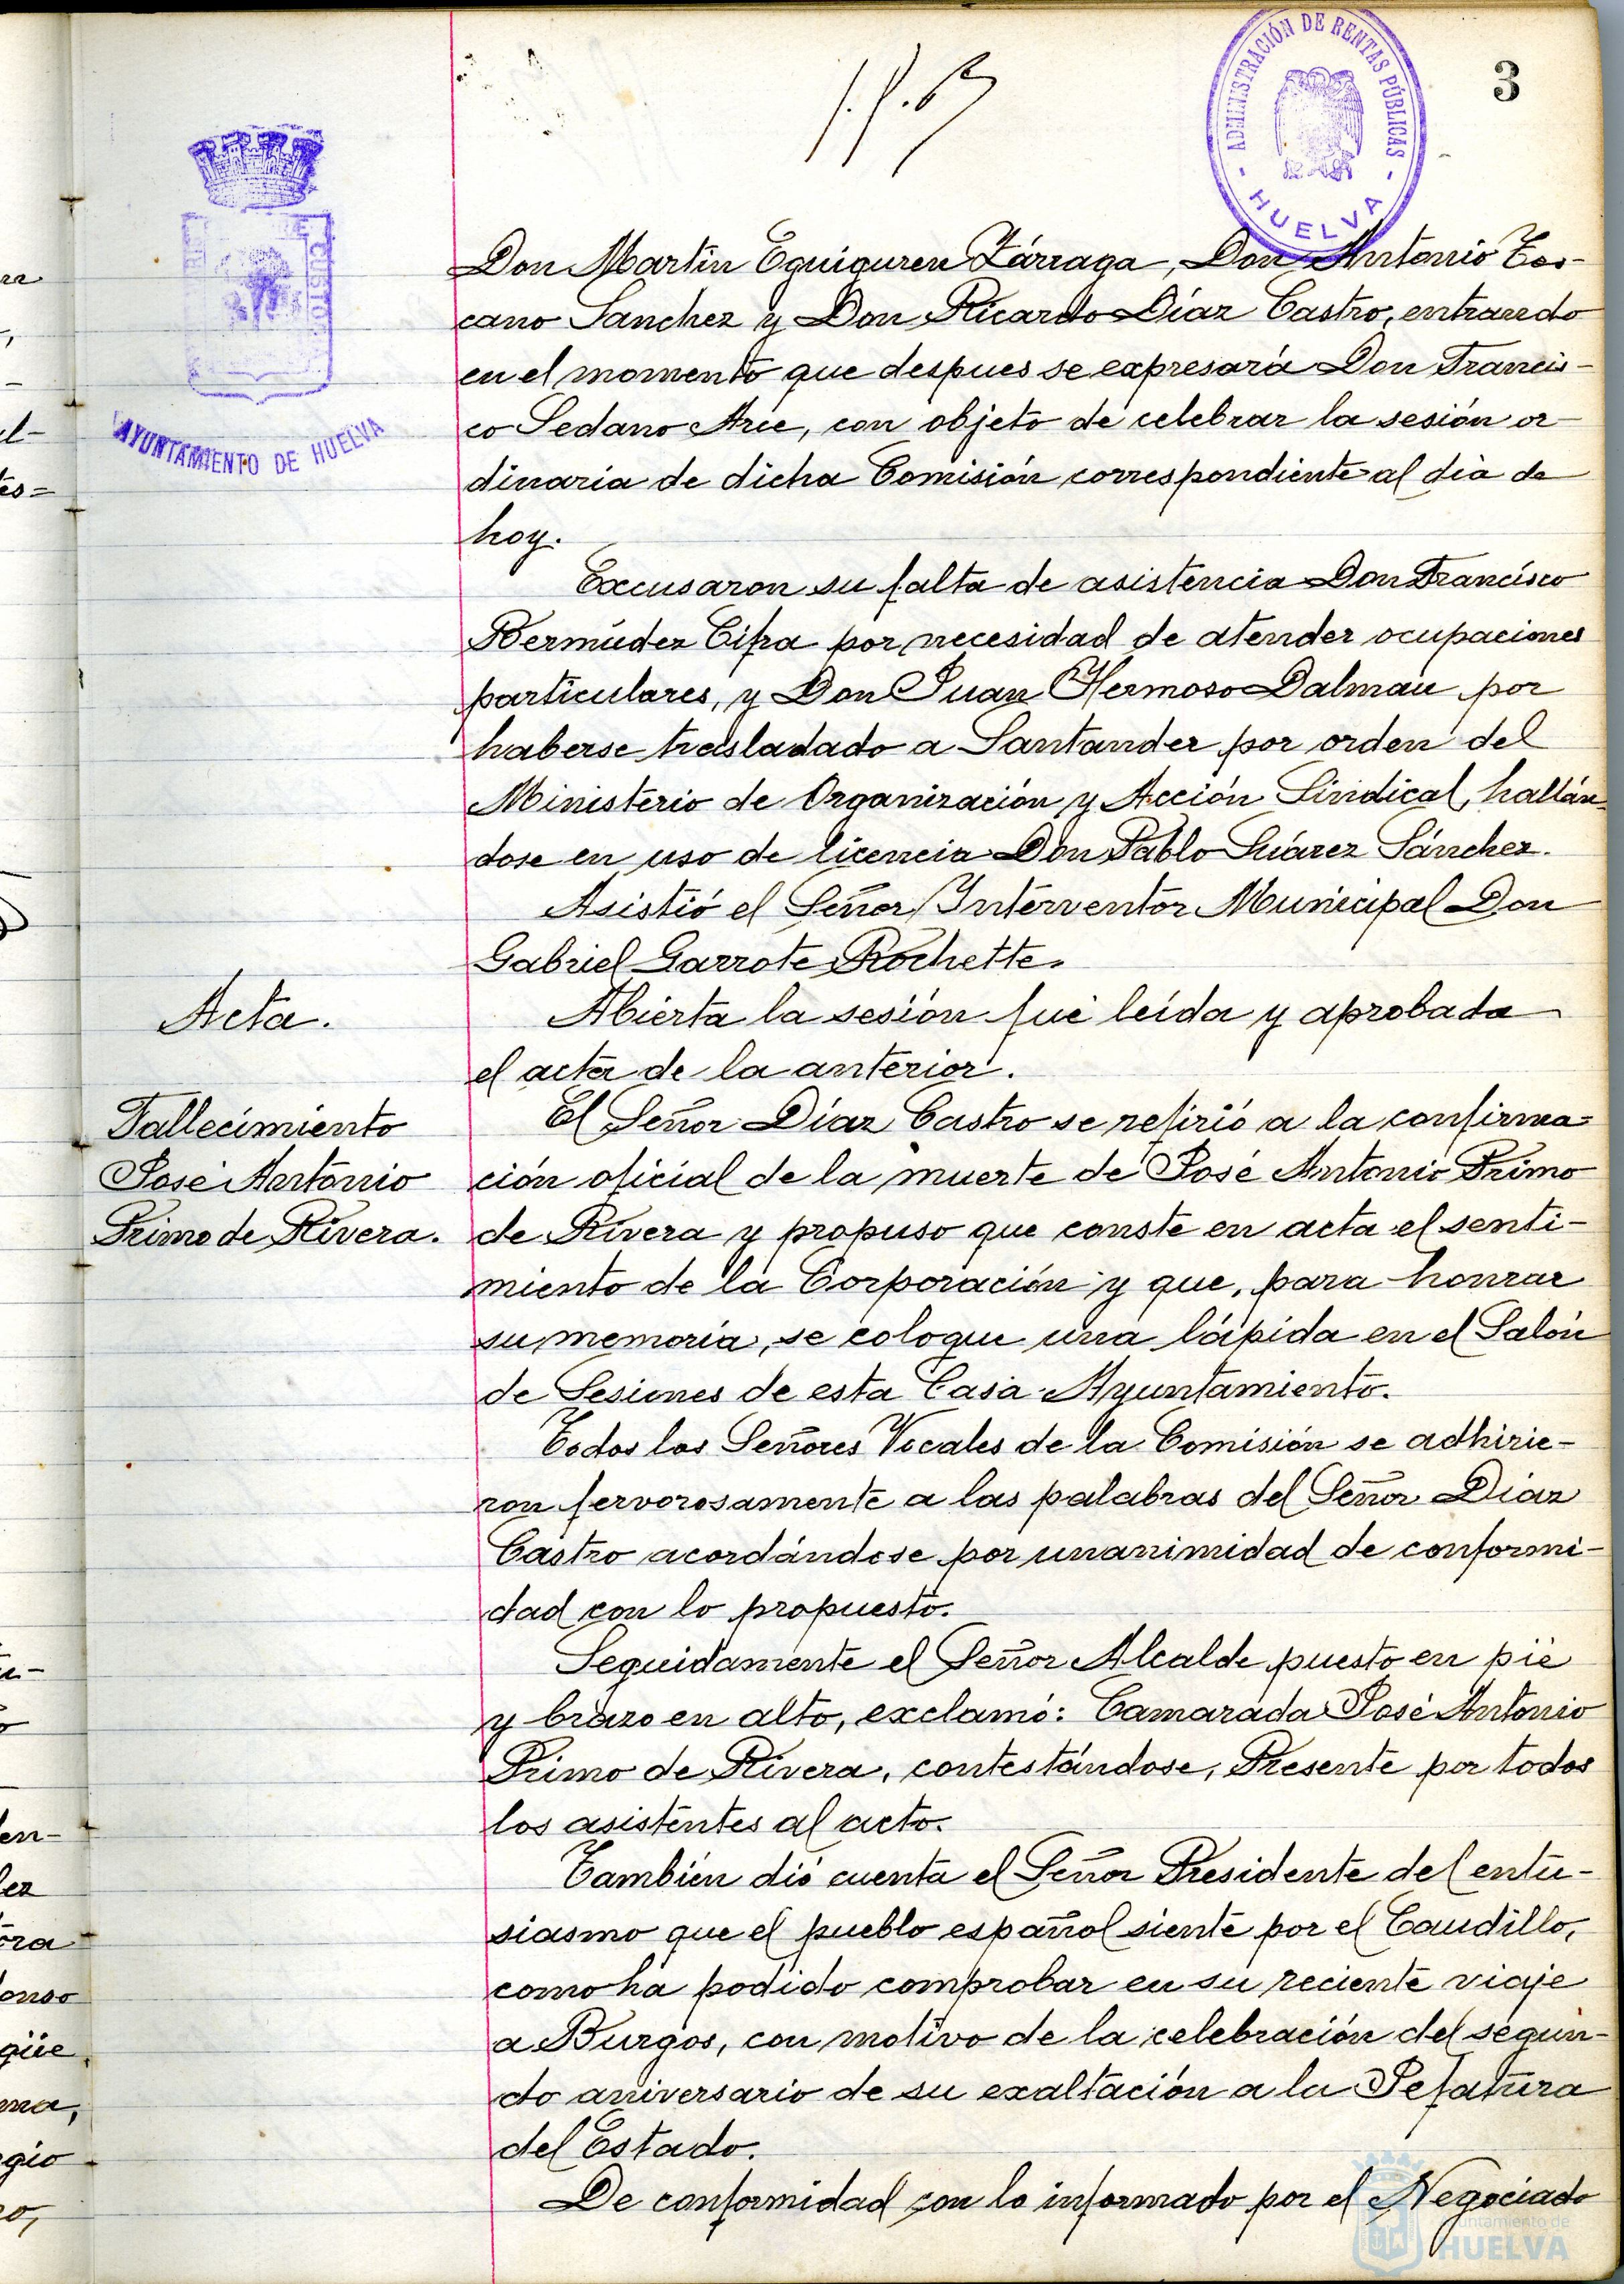 3
ADMINISTRACIÓN DE RENTAS PÚBLICAS
- HUELVA -
CUSTO
AYUNTAMIENTO DE HUELVA
Don Martín Eguiguren Zárraga, Don Antonio Tos-
cano Sanchez y Don Ricardo Díaz Castro, entrando
en el momento que despues se expresará Don Francis-
co Sedano Arce, con objeto de celebrar la sesión or-
dinaria de dicha Comisión correspondiente al día de
hoy.
Excusaron su falta de asistencia Don Francisco
Bermúdez Cifra por necesidad de atender ocupaciones
particulares, y Don Juan Hermoso Dalmau por
haberse trasladado a Santander por orden del
Ministerio de Organización y Acción Sindical, hallán-
dose en uso de licencia Don Pablo Suárez Sánchez.
Asistió el Señor Interventor Municipal Don
Gabriel Garrote Rochette.
Acta.
Abierta la sesión fué leída y aprobada
el acta de la anterior.
Fallecimiento
José Antonio
Primo de Rivera.
El Señor Díaz Castro se refirió a la confirma-
ción oficial de la muerte de José Antonio Primo
de Rivera y propuso que conste en acta el senti-
miento de la Corporación y que, para honrar
su memoria, se coloque una lápida en el Salón
de Sesiones de esta Casa-Ayuntamiento.
Todos los Señores Vocales de la Comisión se adhirie-
ron fervorosamente a las palabras del Señor Díaz
Castro acordándose por unanimidad de conformi-
dad con lo propuesto.
Seguidamente el Señor Alcalde puesto en pié
y brazo en alto, exclamó: Camarada José Antonio
Primo de Rivera, contestándose, Presente por todos
los asistentes al acto.
También dió cuenta el Señor Presidente del entu-
siasmo que el pueblo español siente por el Caudillo,
como ha podido comprobar en su reciente viaje
a Burgos, con motivo de la celebración del segun-
do aniversario de su exaltación a la Jefatura
del Estado.
De conformidad con lo informado por el Negociado
Ayuntamiento de
HUELVA